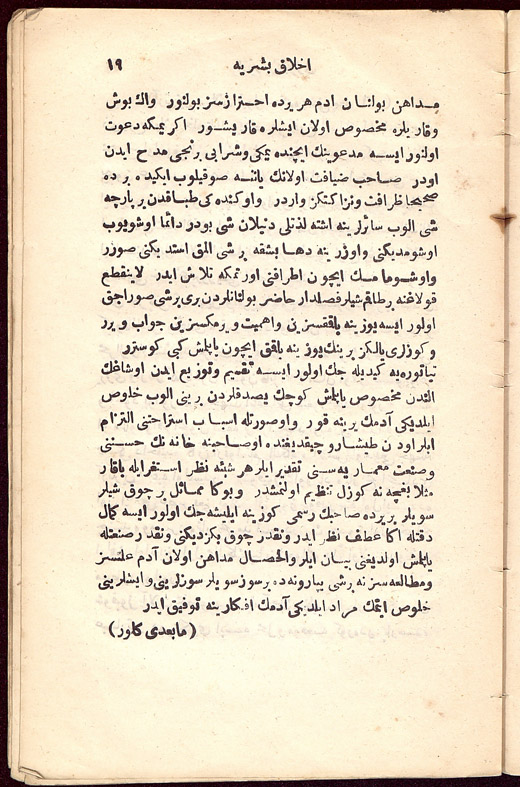 اخلاق بشریه ١٩
مداهن بولنان ادم هر یرده احترازسز بولنور واك بوش
وقارلره مخصوص اولان ایشلره قاریشور اكر یمكه دعوت
اولنور ایسه مدعوینك ایچنده یمكی وشرابی برنجی مدح ایدن
اودر صاحب ضیافت اولانك یاننه صوقیلوب ایكیده برده
صحیحا ظرافت ونزاكتكز واردر واوكنده كی طباقدن بر پارچه
شی الوب سائرلرینه اشته لذتلی دنیلان شی بودر دائما اوشیوب
اوشومدیكنی واوزرینه دها بشقه بر شی المق استدیكنی صورر
واوشومامك ایچون اطرافنی اورتمكه تلاش ایدر لاینقطع
قولاغنه بر طاقم شیلر فصلدار حاضر بولنانلردن بری برشی صوراجق
اولور ایسه یوزینه باققسزین واهمیت ویرمكسزین جواب ویرر
وكوزلری یالكز برینك یوزینه باقمق ایچون یاپلمش كبی كوستررر
تیاترویه كیدیله جك اولور ایسه تقسیم وتوزیع ایدن اوشاغك
الندن مخصوص یاپلمش كوچك یصدقلردن برینی الوب خلوص
ایلدیكی آدمك یرینه قور واوصورتله اسباب استراحتنی التزام
ایلر اودن طیشارو چیقدیغنده اوصاحبنه خانه نك حسننی
وصنعت معماریه سنی تقدیر ایلر هر شیئه نظر استغرابله باقار
مثلا بغچه نه كوزل تنظیم اولنمشدر وبوكا مماثل بر چوق شیلر
سویلر بر یرده صاحبك رسمی كوزینه ایلیشه جك اولور ایسه كمال
دقتله اكا عطف نظر ایدر ونقدر چوق بكزدیكنی ونقدر صنعتله
یاپلمش اولدیغنی بیان ایلر والحاصل مداهن اولان آدم علتسز
ومطالعه سز نه برشی یپار ونه ده بر سوز سویلر سوزلرینی وایشلرینی
خلوص ایتمك مراد ایلدیكی آدمك افكارینه توفیق ایدر
(مابعدی كلور)